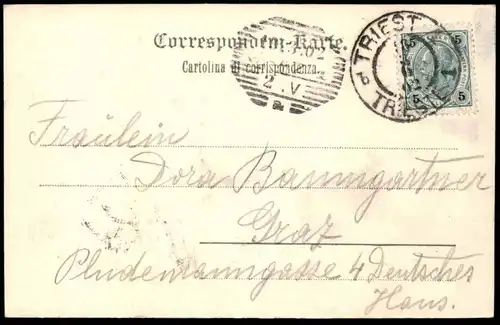 Correspondenz-Karte.
Cartolina di corrispondenza.
TRIEST
TRIEST
5 5
2 . V
Fräulein
Dora Baumgartner
Graz
4 Deutsches
Haus.